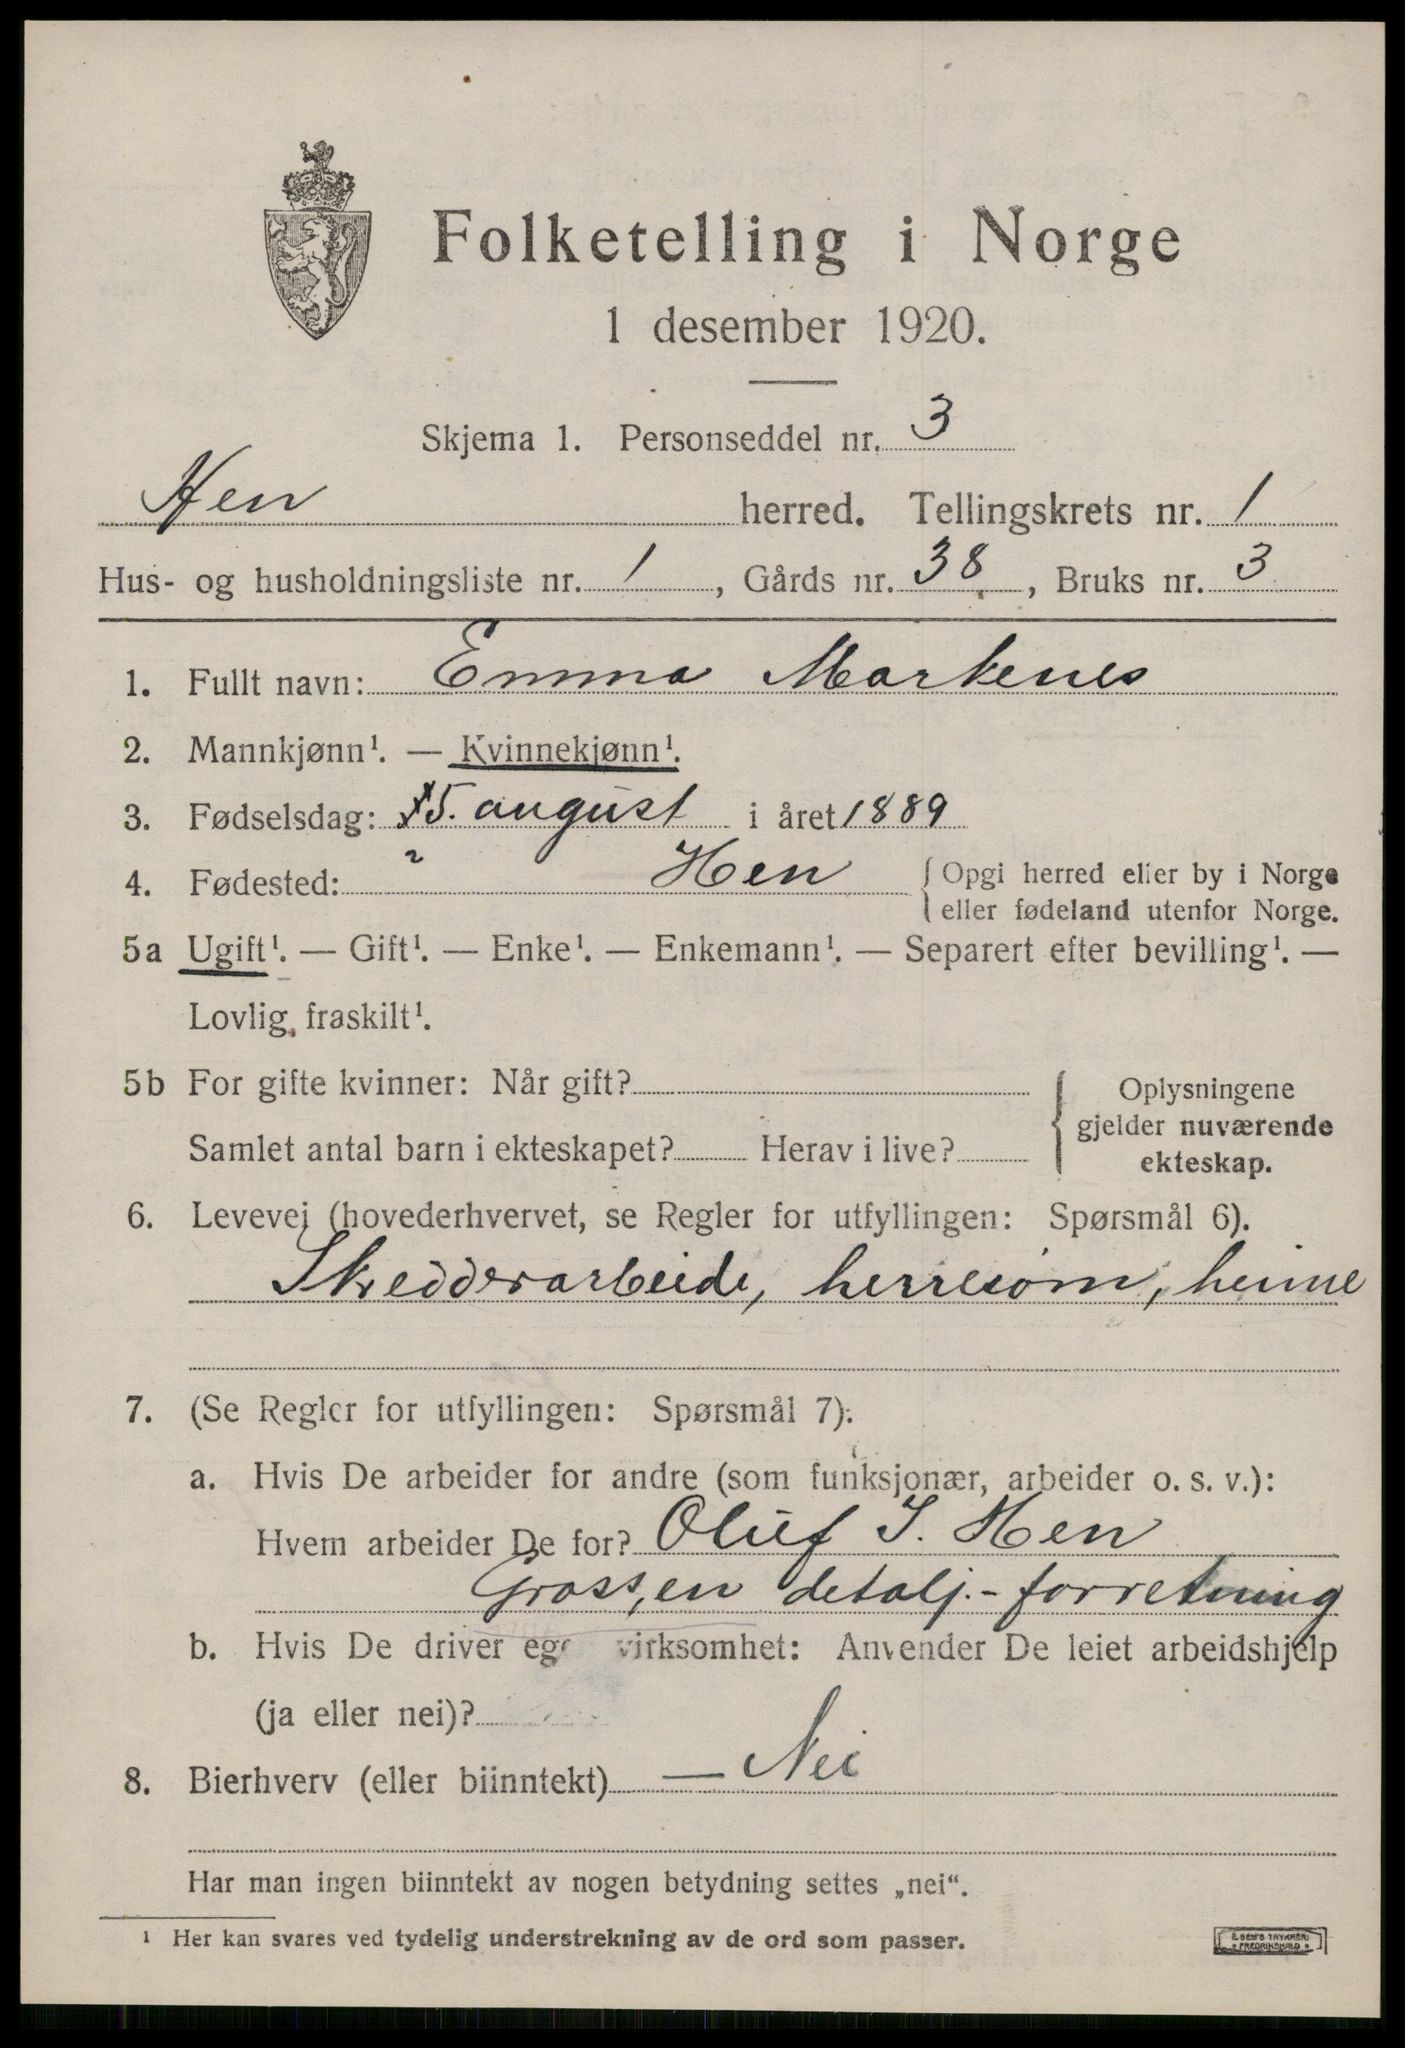 Folketelling i Norge
1 desember 1920.
Skjema 1. Personseddel nr. 3
Hen herred. Tellingskrets nr. 1
Hus- og husholdningsliste nr. 1, Gårds nr. 38, Bruks nr. 3
1. Fullt navn: Emma Markenes
2. Mannkjønn¹. — Kvinnekjønn¹.
3. Fødselsdag: 15. august i året 1889
4. Fødested: Hen { Opgi herred eller by i Norge
eller fødeland utenfor Norge.
5a Ugift¹. — Gift¹. — Enke¹. — Enkemann¹. — Separert efter bevilling¹. —
Lovlig fraskilt¹.
5b For gifte kvinner: Når gift?
Samlet antal barn i ekteskapet? Herav i live?
Oplysningene
gjelder nuværende
ekteskap.
6. Levevei (hovederhvervet, se Regler for utfyllingen: Spørsmål 6).
Skredderarbeide, herresøm, heime
7. (Se Regler for utfyllingen: Spørsmål 7).
a. Hvis De arbeider for andre (som funksjonær, arbeider o. s. v.):
Hvem arbeider De for? Oluf I. Hen
Gross, en detalj.-forretning
b. Hvis De driver egen virksomhet: Anvender De leiet arbeidshjelp
(ja eller nei)?
8. Bierhverv (eller biinntekt) — Nei
Har man ingen biinntekt av nogen betydning settes „nei“.
¹ Her kan svares ved tydelig understrekning av de ord som passer.
E. SEM'S TRYKKERI
FREDRIKSHALD